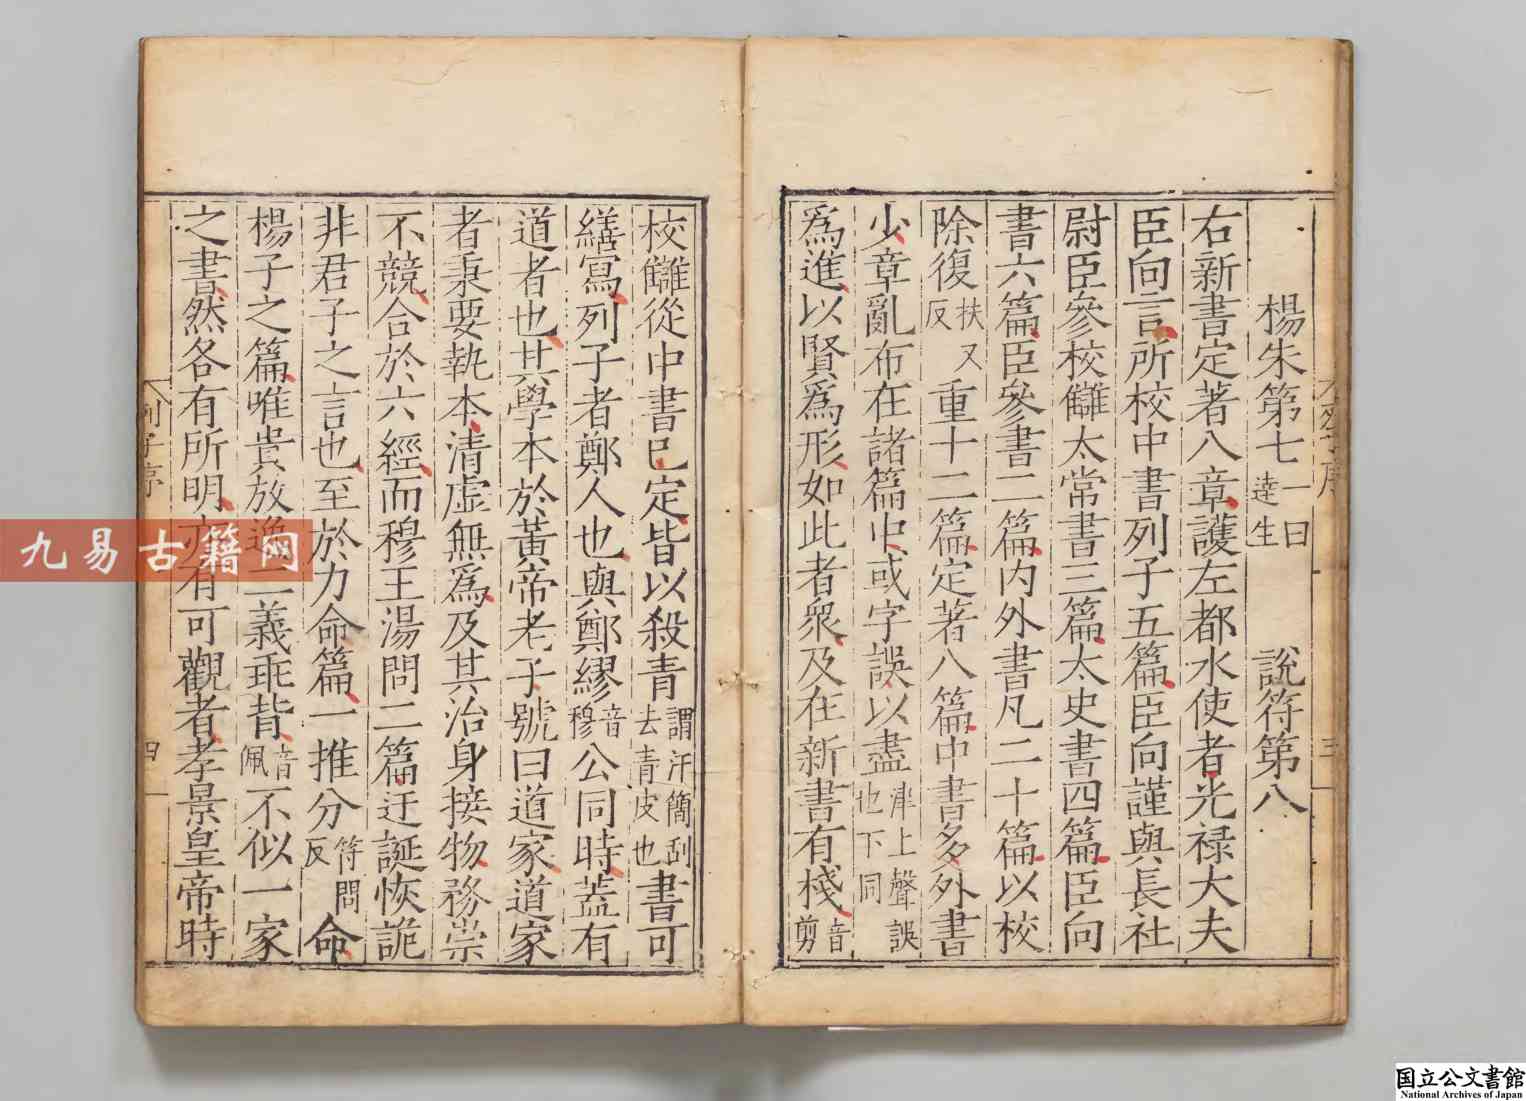 楊朱第七一曰達生　說符第八
右新書定著八章護左都水使者光祿大夫
臣向言所校中書列子五篇臣向謹與長社
尉臣參校讎太常書三篇太史書四篇臣向
書六篇臣參書二篇內外書凡二十篇以校
除復扶又反重十二篇定著八篇中書多外書
少章亂布在諸篇中或字誤以盡津上聲誤也下同
爲進以賢爲形如此者衆及在新書有棧音剪
校讎從中書已定皆以殺青謂汗簡刮去青皮也書可
繕寫列子者鄭人也與鄭繆音穆公同時蓋有
道者也其學本於黃帝老子號曰道家道家
者秉要執本清虛無爲及其治身接物務崇
不競合於六經而穆王湯問二篇迂誕恢詭
非君子之言也至於力命篇一推分符問反命
楊子之篇唯貴放逸二義乖背音佩不似一家
之書然各有所明亦有可觀者孝景皇帝時
列子序
四
九易古籍网
国立公文書館
National Archives of Japan